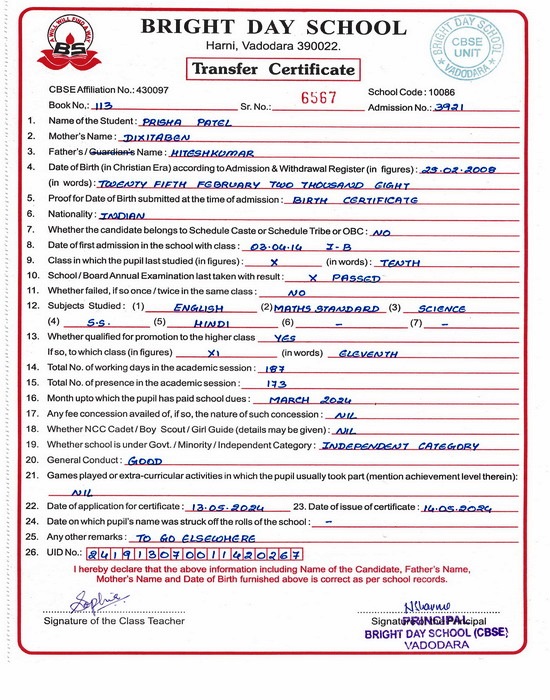 A WILL WILL FIND A WAY
BS
BRIGHT DAY SCHOOL
Harni, Vadodara 390022.
Transfer Certificate
BRIGHT DAY SCHOOL
CBSE
UNIT
VADODARA
CBSE Affiliation No.: 430097 School Code : 10086
Book No.: 113 Sr. No.: 6567 Admission No.: 3921
1. Name of the Student : PRISHA PATEL
2. Mother's Name : DIXITABEN
3. Father's / Guardian's Name : HITESHKUMAR
4. Date of Birth (in Christian Era) according to Admission & Withdrawal Register (in figures) : 25.02.2008
(in words) : TWENTY FIFTH FEBRUARY TWO THOUSAND EIGHT
5. Proof for Date of Birth submitted at the time of admission : BIRTH CERTIFICATE
6. Nationality : INDIAN
7. Whether the candidate belongs to Schedule Caste or Schedule Tribe or OBC : NO
8. Date of first admission in the school with class : 03.04.14 I-B
9. Class in which the pupil last studied (in figures) : X (in words) : TENTH
10. School / Board Annual Examination last taken with result : X PASSED
11. Whether failed, if so once / twice in the same class : NO
12. Subjects Studied : (1) ENGLISH (2) MATHS STANDARD (3) SCIENCE
(4) S.S. (5) HINDI (6) – (7) –
13. Whether qualified for promotion to the higher class YES
If so, to which class (in figures) XI (in words) ELEVENTH
14. Total No. of working days in the academic session : 187
15. Total No. of presence in the academic session : 173
16. Month upto which the pupil has paid school dues : MARCH 2024
17. Any fee concession availed of, if so, the nature of such concession : NIL
18. Whether NCC Cadet / Boy Scout / Girl Guide (details may be given) : NIL
19. Whether school is under Govt. / Minority / Independent Category : INDEPENDENT CATEGORY
20. General Conduct : GOOD
21. Games played or extra-curricular activities in which the pupil usually took part (mention achievement level therein):
NIL
22. Date of application for certificate : 13.05.2024 23. Date of issue of certificate : 14.05.2024
24. Date on which pupil's name was struck off the rolls of the school : –
25. Any other remarks : TO GO ELSEWHERE
26. UID No.: 241913070011420267
I hereby declare that the above information including Name of the Candidate, Father's Name,
Mother's Name and Date of Birth furnished above is correct as per school records.
Sophia
Signature of the Class Teacher Signature of the Principal
PRINCIPAL
BRIGHT DAY SCHOOL (CBSE)
VADODARA